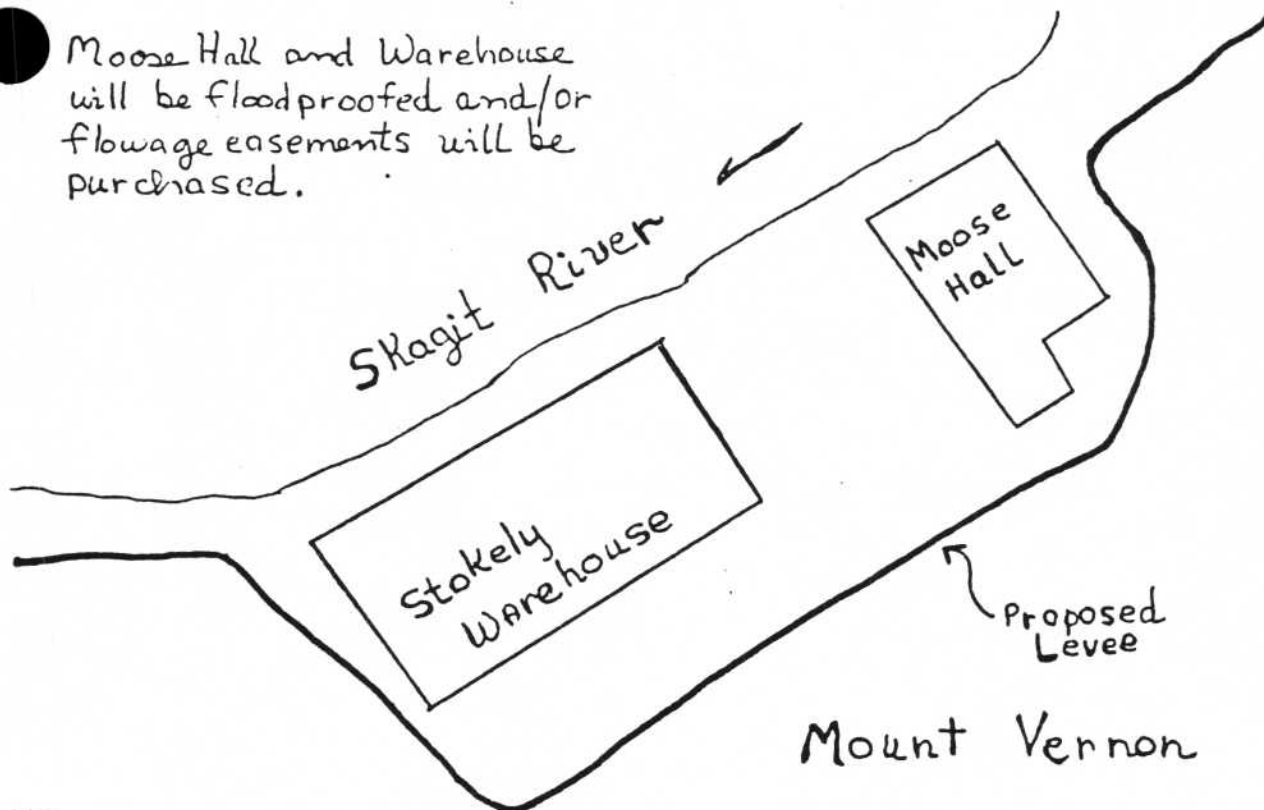 Moose Hall and Warehouse
will be floodproofed and/or
flowage easements will be
purchased.
Skagit River
Moose
Hall
Stokely
Warehouse
Proposed
Levee
Mount Vernon